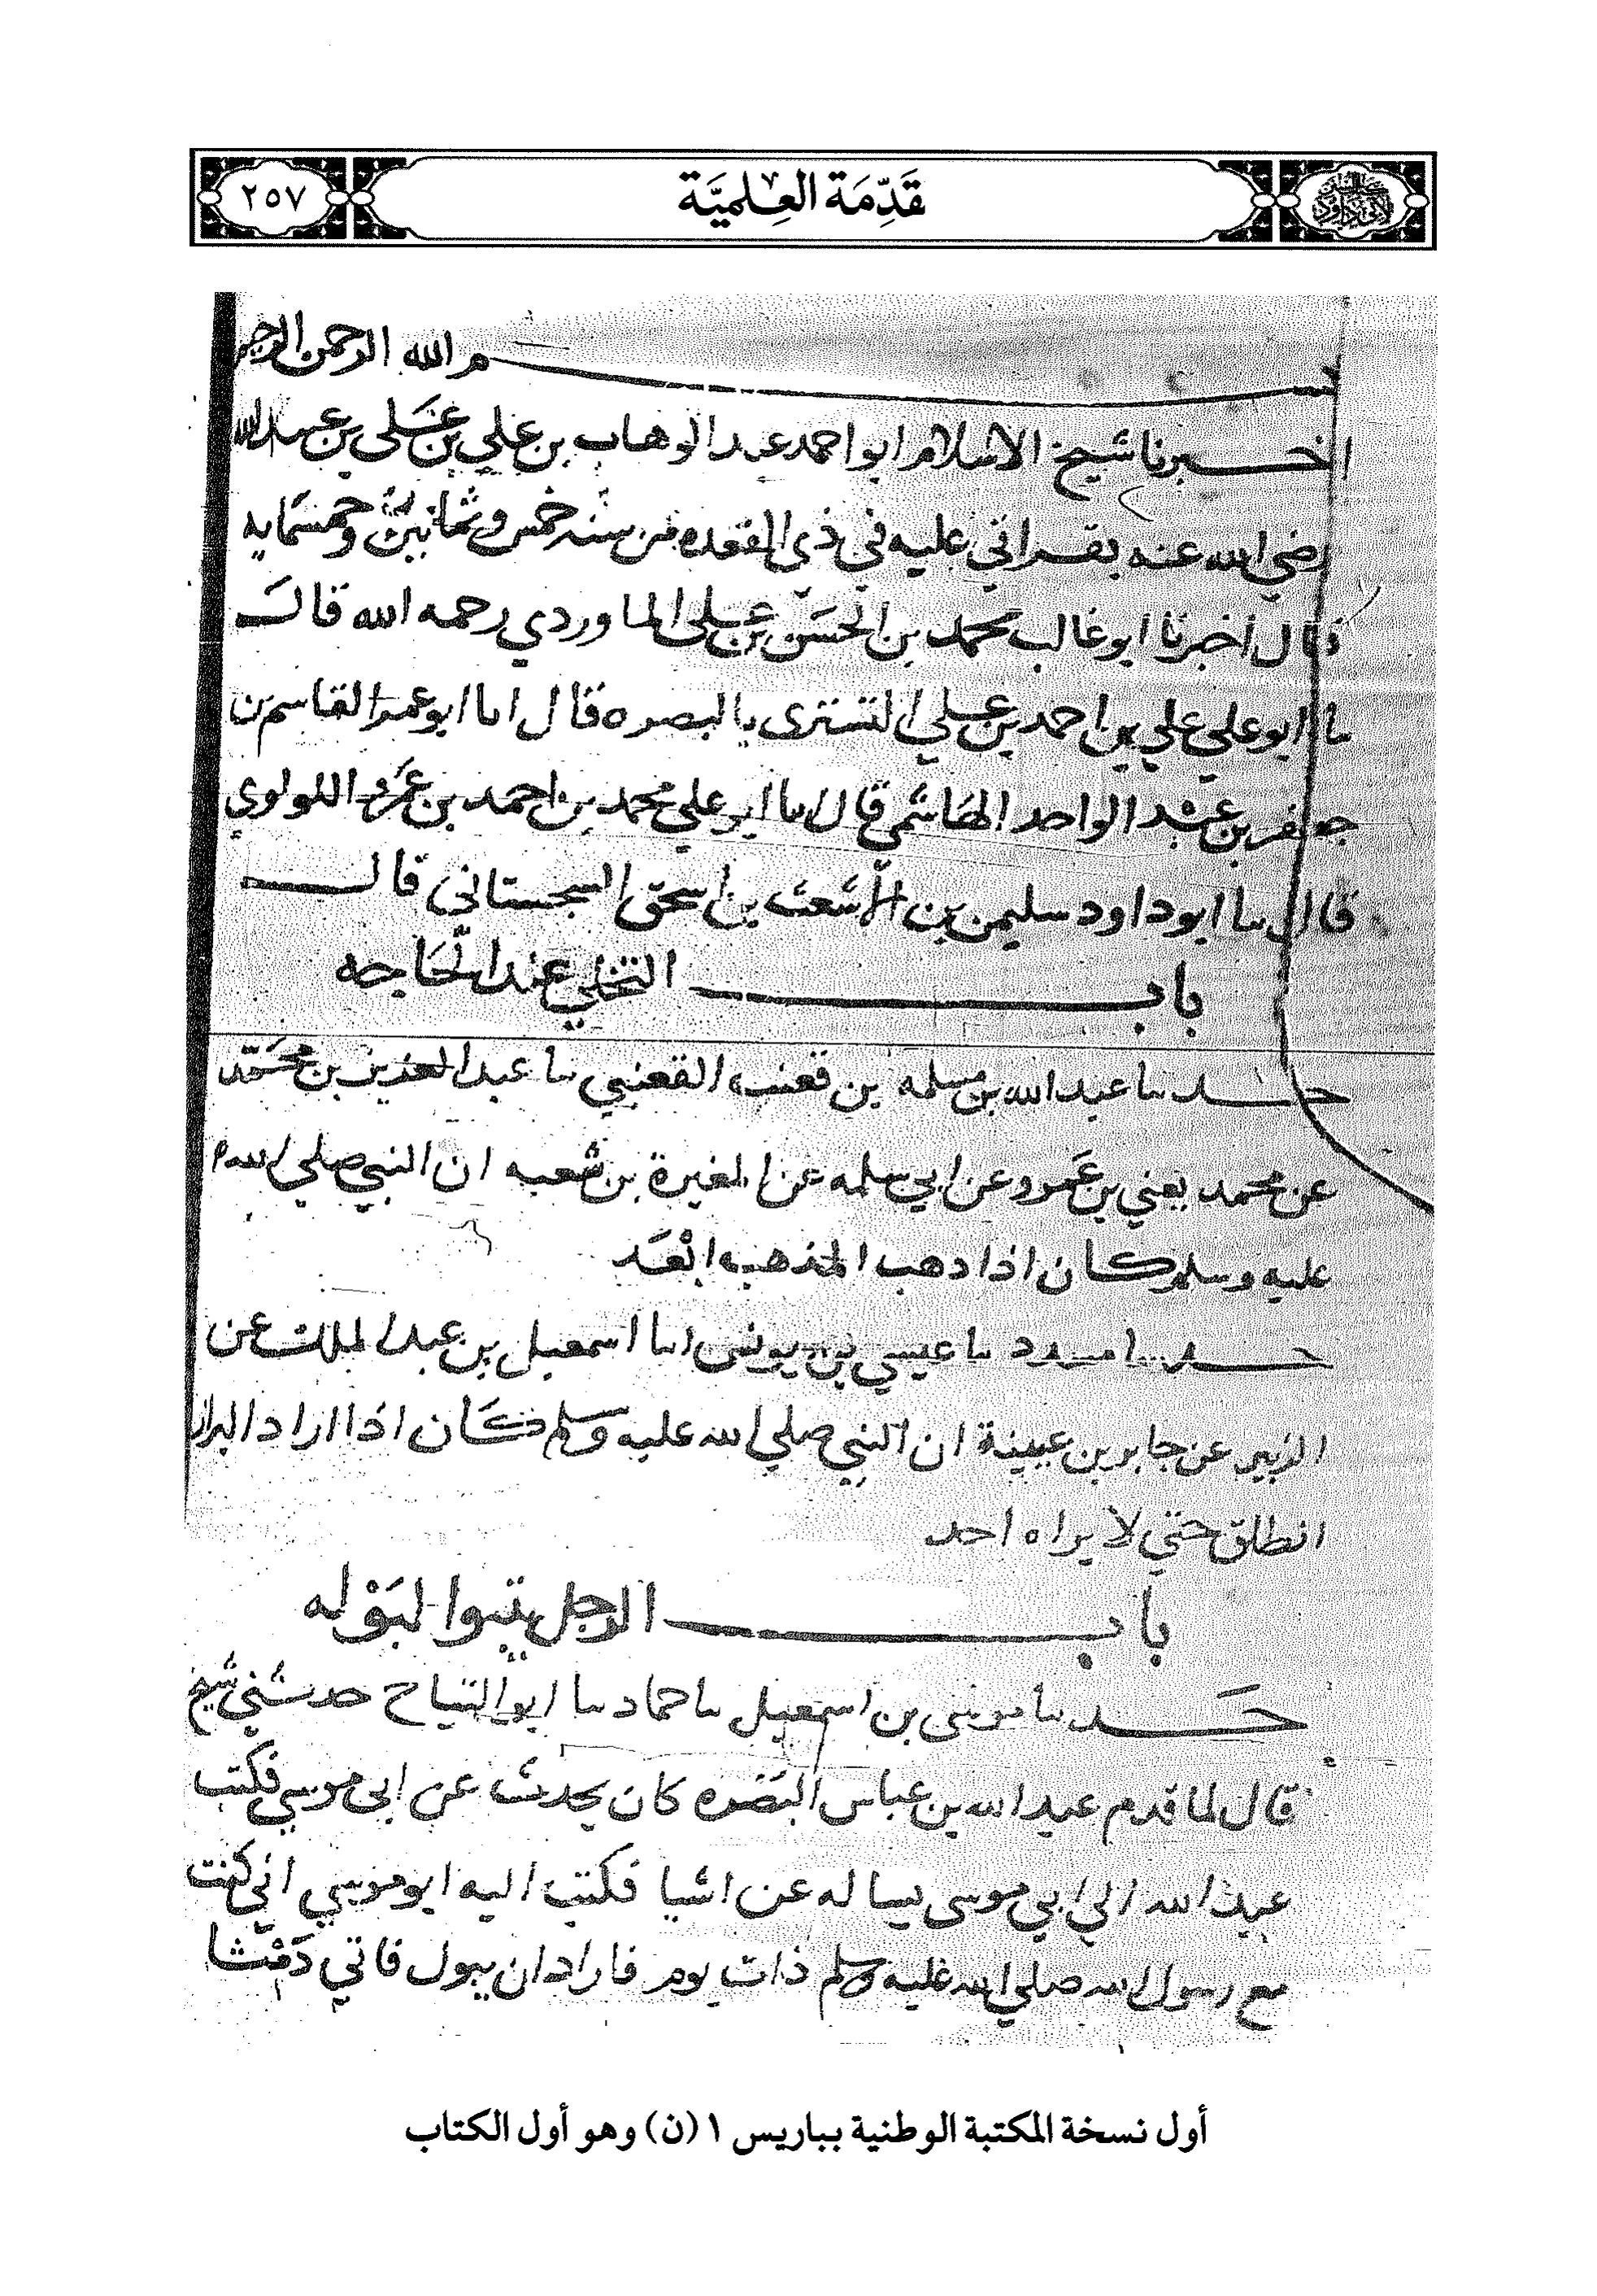 قَدِّمَة العِلميَّة
٢٥٧
بسم الله الرحمن الرحيم
اخبرنا شيخ الاسلام ابو احمد عبد الوهاب بن علي بن عَلى بن عبيد الله
رضي الله عنه بقراتي عليه في ذي القعده من سنه خمس وثمانين وخمسمايه
قال اخبرنا ابو غالب محمد بن الحسَن بن على الماوردي رحمه الله قال
ما ابو علي علي بن احمد بن علي التسترى بالبصره قال اما ابو عمر القاسم بن
جعفر بن عبد الواحد الهاشمي قال ىا ابو علي محمد بن احمد بن عَمرو اللولوي
قال ىا ابو داود سليمن بن الاشعث بن اسحق السجستاني قال
باب التخلي عند الحَاجه
حدىىا عبد الله بن مسلمه بن قعنب القعنبي ىىا عبد العزيز بن محَمّد
عن محمد يعني بن عَمرو عن ابي سلمه عن المغيرة بن شعبه ان النبي صلي الله
عليه وسلم كان اذا دهب المذهب ابْعَد
حدىىا مسدد ىىا عيسي بن يونس اىىا اسمعيل بن عبد الملك عن
الزبير عن جابر بن عبينة ان النبي صلي الله عليه وسلم كَان اذا اراد البراز
انطلق حتي لا يراه احد
باب الرجل يتبوا لبَوْله
حَدىىا موسى بن اسمعيل ىىا حماد ىىا ابو التياح حدثني شيخ
قال لما قدم عبد الله بن عباس البَصْره كان يحدث عن ابى موسي فكتب
عبد الله الي ابي موسى يساله عن اشيا فكتب اليه ابو موسي اني كنت
مع رسول الله صلي الله عليه وسلم ذات يوم فاراد ان يبول فاتي دَمْثا
أول نسخة المكتبة الوطنية بباريس ١ (ن) وهو أول الكتاب